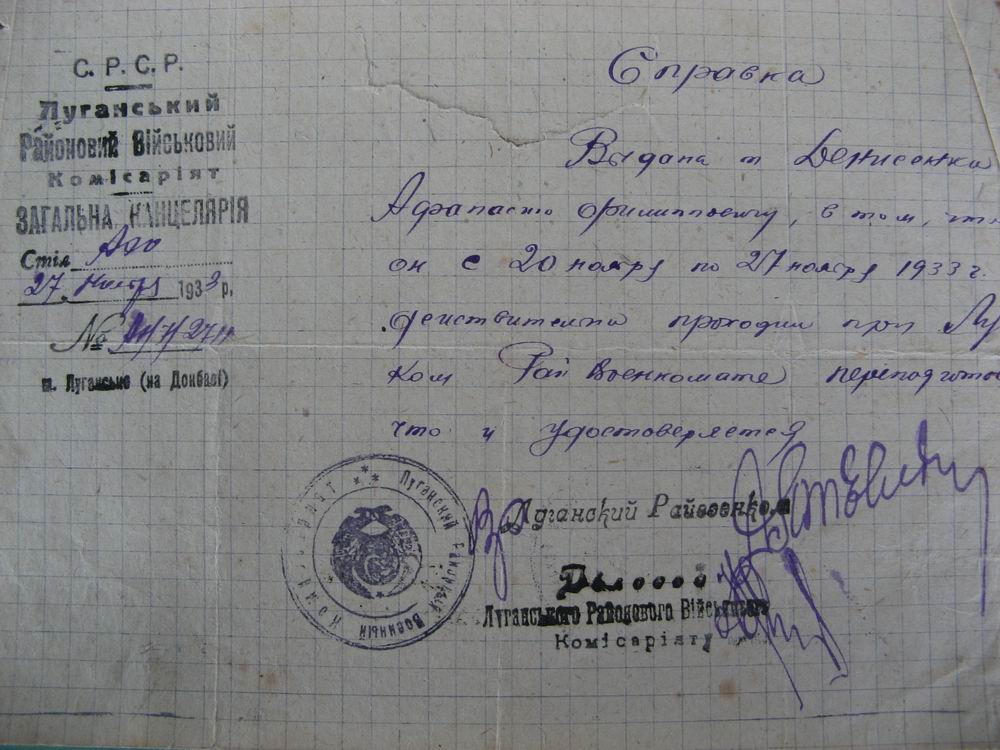 С. Р. С. Р.
Луганський
Районовий Військовий
Комісаріят
ЗАГАЛЬНА КАНЦЕЛЯРІЯ
Стіл
27 ноября 1933 р.
№
м. Луганське (на Донбасі)
Справка
Выдана т Денисенко
Афанасию Филипповичу, в том, что
он с 20 ноября по 27 ноября 1933 г.
действительно проходил при Лу
ком Рай Военкомате переподготов
что и удостоверяется
Луганский Районный Военный Комісаріят
Вр Луганский Райвоенком
Луганського Районового Військового
Комісаріяту